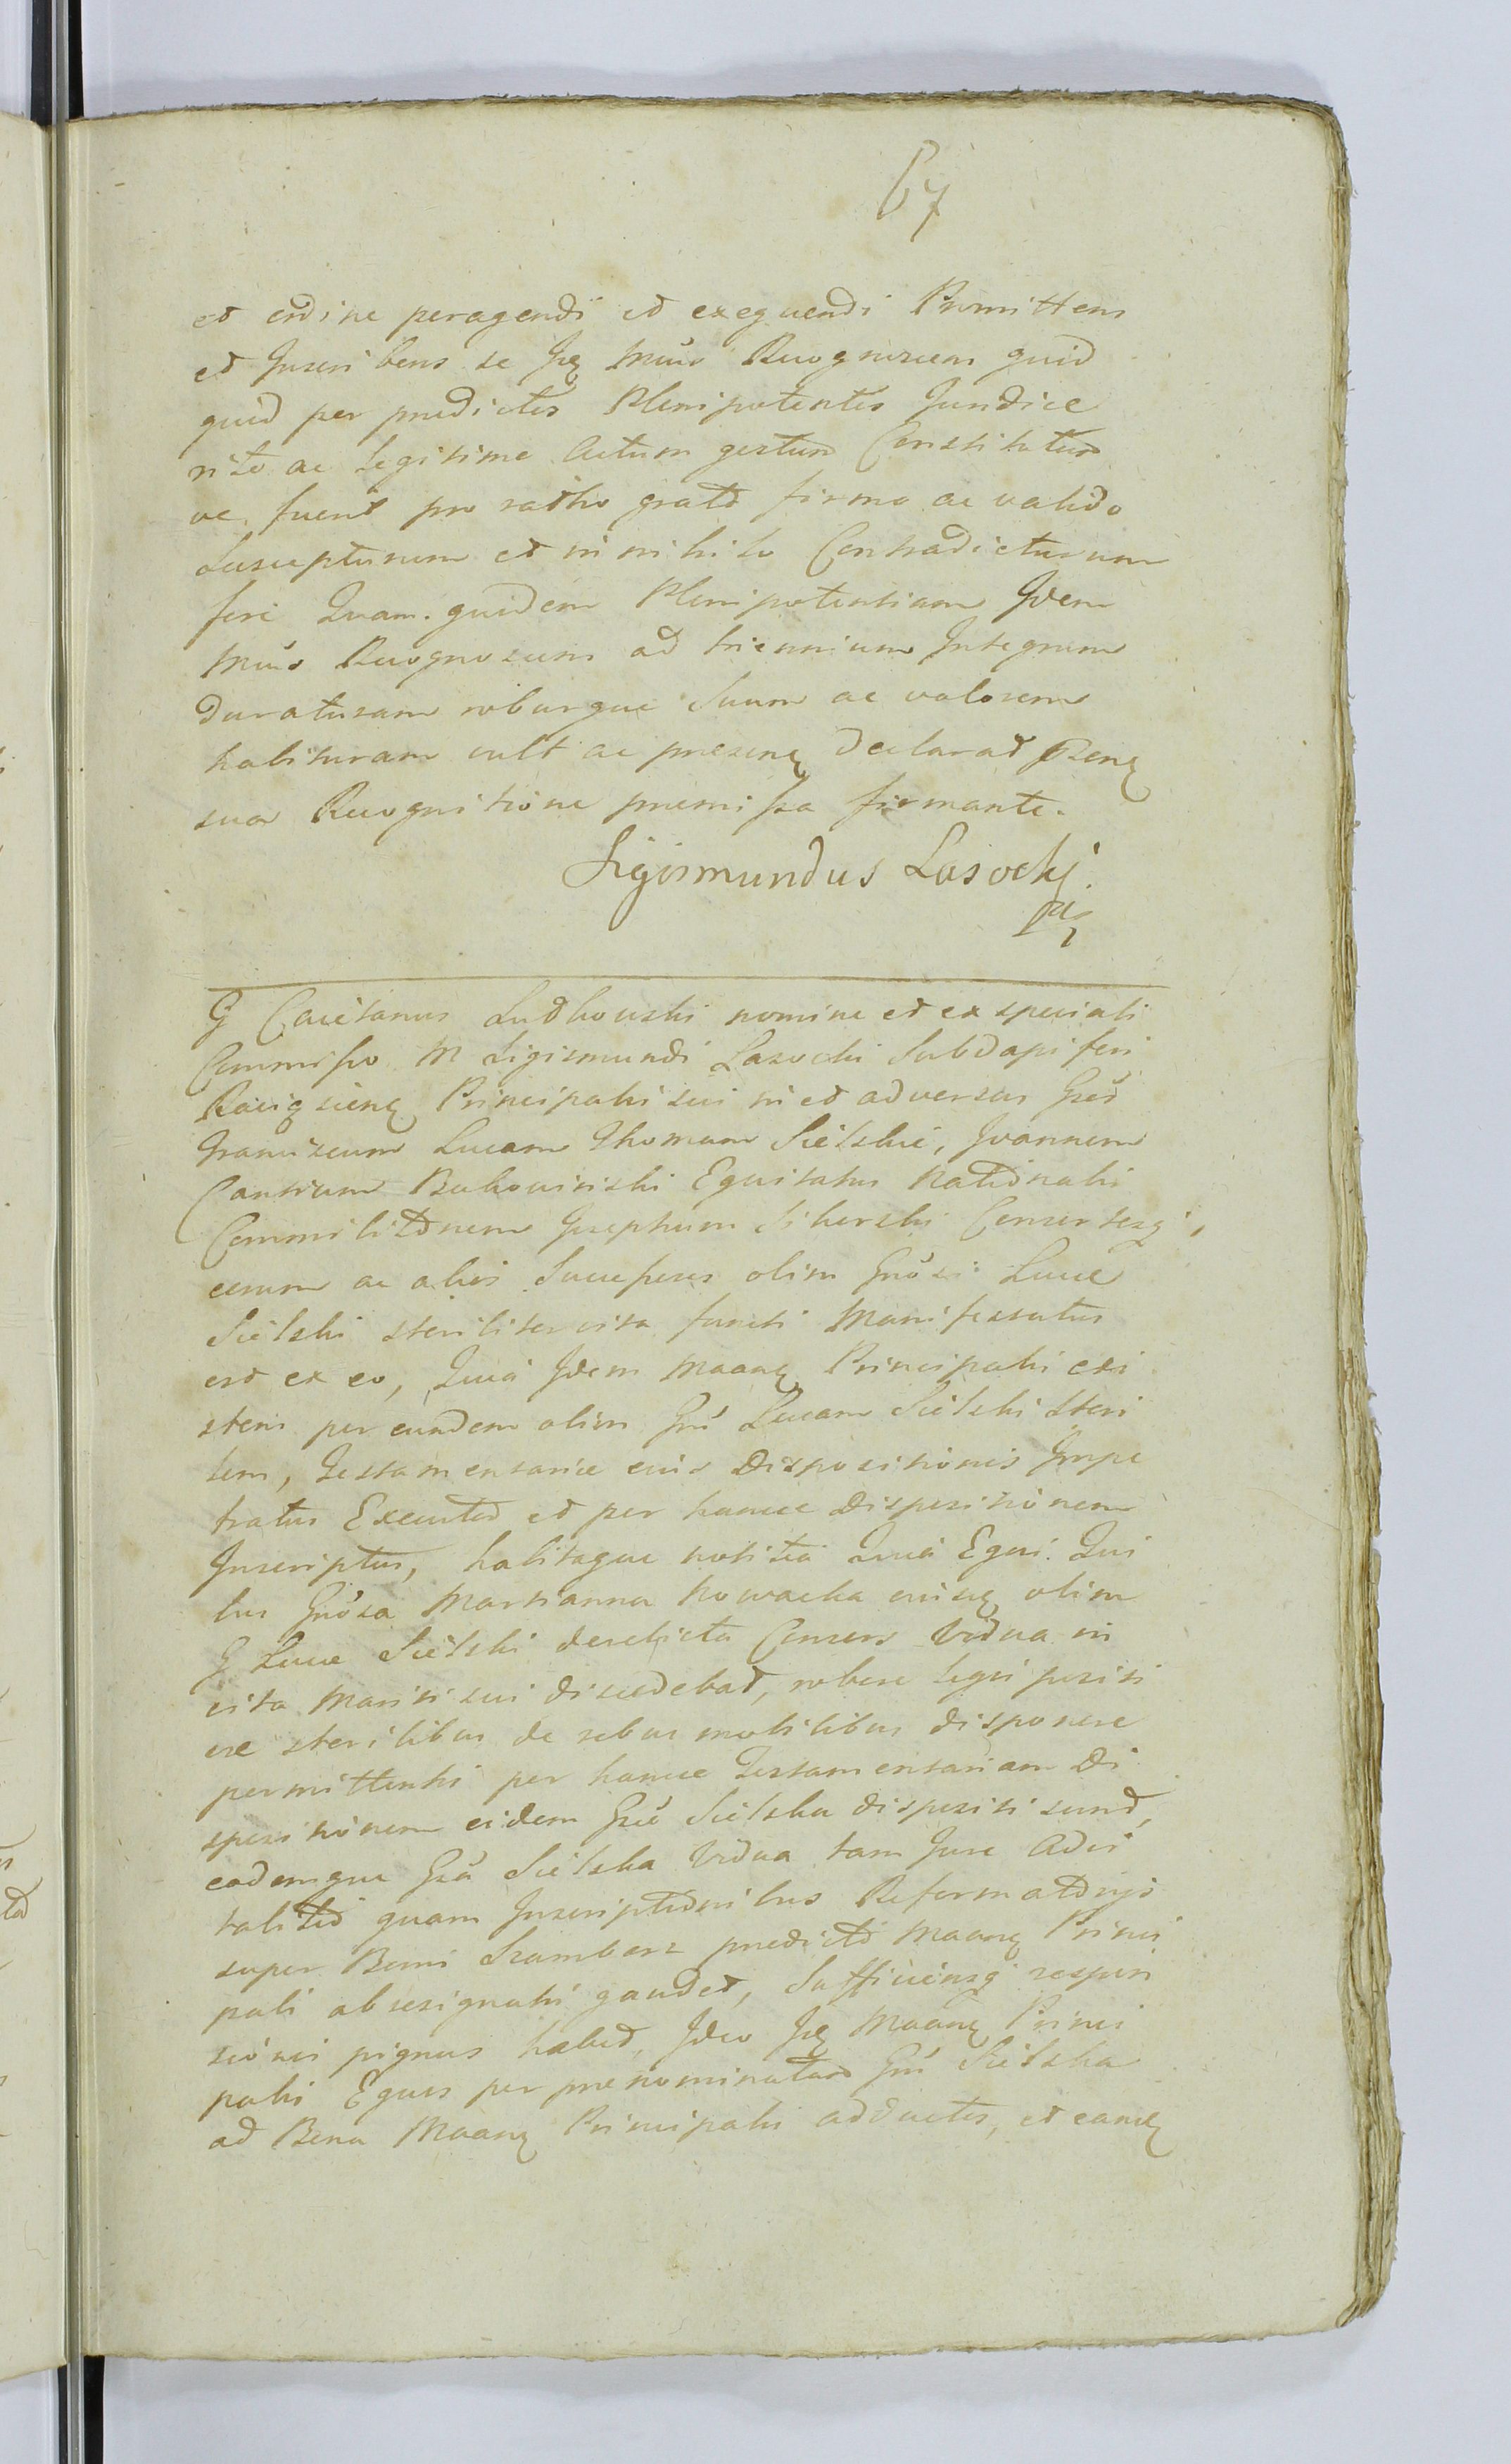 67
et ordine peragendi et exequendi Promittens
et Inscribens se Ipę Mũus Recognoscens quid
quid per predictos Plenipotentes Juridice
rite ac legitime actum gestum Constitutum
ve fuerit pro ratho grato firmo ac valido
suscepturum et in nihilo Contradicturum
fore Quam quidem Plenipotentiam Idem
Mũus Recognoscens ad triennium Integrum
duraturam roburque suum ac valorem
habituram vult ac presenę declarat
sua Recognitione premissa firmante.
Sigismundus Lasocki
G Caietanus Ludkowski nomine et ex speciali
Commisso M Sigismundi Lasocki Subdapiferi
Raciązienę Principalis sui in et adversus
Franciscum Lucam Thomam Sielskie, Joannem
Cantium Bukowinski Equitatus Nationalis
Commilitonem Josephum Sikorski Consortesq,
eorum ac alios Successores olim Gnosi Luce
Sielski steriliter vita functi Manifestatus
est ex eo, Quia Idem Maanę Principalis exi
stens per eundem olim Gnũ Lucam Sielski steri
lem, Testamentarie eius Dispositionis Impe
tratus Executor et per hancce Dispositionem
Inscriptus, habitaque notitia Quia Equi Qui
bus Gnosa Marianna Nowacka eiusę olim
G Luce Sielski derelicta Consors Vidua in
vita Mariti sui discedebat, robore legis positi
ve sterilibus de rebus mobilibus disponere
permittentis per hancce Testamentariam Di
spositionem eidem Sielska dispositi sunt,
eademque Sielska Vidua tam Jure Advi
talitio quam Inscriptionibus Reformatorijs
super Bonis predicto Maanę Princi
pali absesignatis gaudet, Sufficiensq respon
sionis pignus habet, Ideo Ipę Maanę Princi
palis Equos per prenominatam Gnũ Sielska
ad Bona Maanę Principalis adductos, et eandę